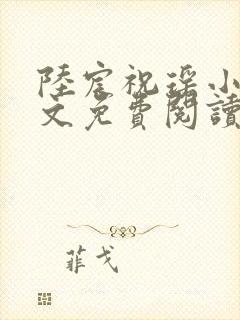 陸宸祝瑶小
文免費閱讀
菲戈